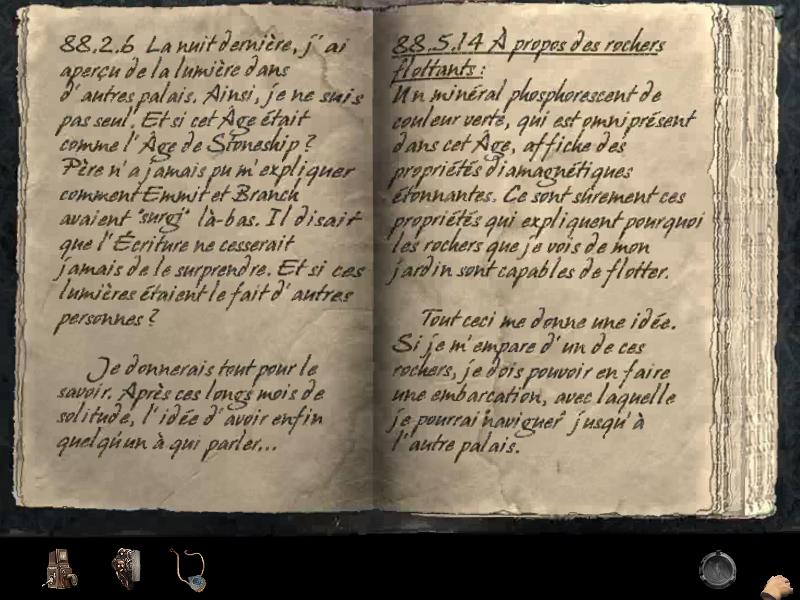 88.2.6 La nuit dernière, j'ai
aperçu de la lumière dans
d'autres palais. Ainsi, je ne suis
pas seul. Et si cet Âge était
comme l'Âge de Stoneship ?
Père n'a jamais pu m'expliquer
comment Emmit et Branch
avaient "surgi" là-bas. Il disait
que l'Écriture ne cesserait
jamais de le surprendre. Et si ces
lumières étaient le fait d'autres
personnes ?
Je donnerais tout pour le
savoir. Après ces longs mois de
solitude, l'idée d'avoir enfin
quelqu'un à qui parler...
88.5.14 À propos des rochers
flottants :
Un minéral phosphorescent de
couleur verte, qui est omniprésent
dans cet Âge, affiche des
propriétés diamagnétiques
étonnantes. Ce sont sûrement ces
propriétés qui expliquent pourquoi
les rochers que je vois de mon
jardin sont capables de flotter.
Tout ceci me donne une idée.
Si je m'empare d'un de ces
rochers, je dois pouvoir en faire
une embarcation, avec laquelle
je pourrai "naviguer" jusqu'à
l'autre palais.